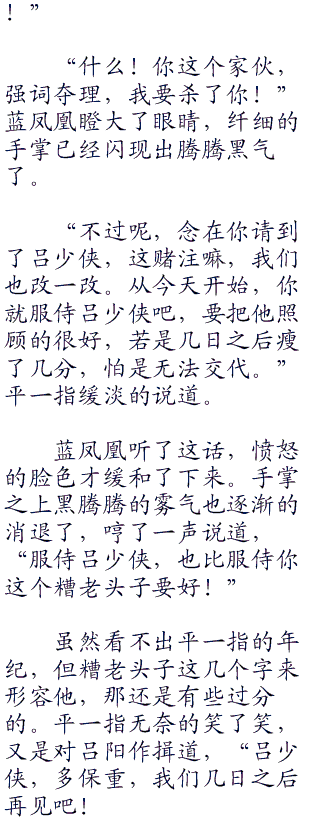 ！”
“什么！你这个家伙，
强词夺理，我要杀了你！”
蓝凤凰瞪大了眼睛，纤细的
手掌已经闪现出腾腾黑气
了。
“不过呢，念在你请到
了吕少侠，这赌注嘛，我们
也改一改。从今天开始，你
就服侍吕少侠吧，要把他照
顾的很好，若是几日之后瘦
了几分，怕是无法交代。”
平一指缓淡的说道。
蓝凤凰听了这话，愤怒
的脸色才缓和了下来。手掌
之上黑腾腾的雾气也逐渐的
消退了，哼了一声说道，
“服侍吕少侠，也比服侍你
这个糟老头子要好！”
虽然看不出平一指的年
纪，但糟老头子这几个字来
形容他，那还是有些过分
的。平一指无奈的笑了笑，
又是对吕阳作揖道，“吕少
侠，多保重，我们几日之后
再见吧！